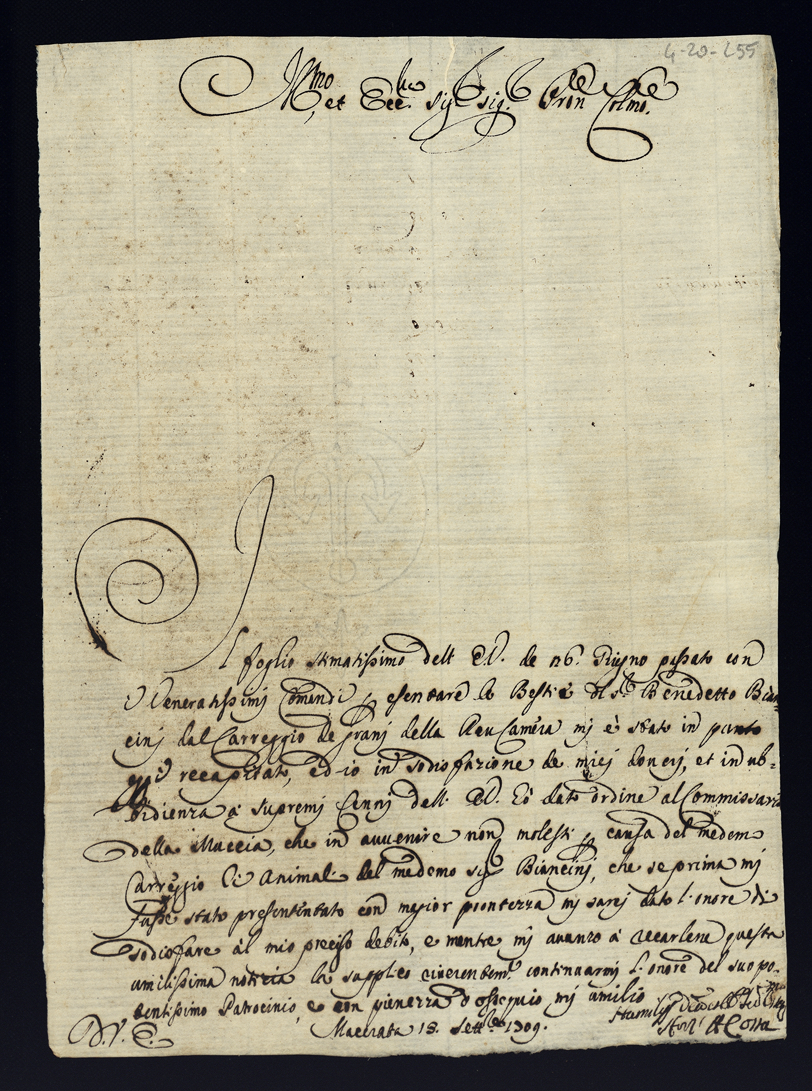 4-20-255
Ill.mo, et Ecc. Sig. Sig. Pron Colmo.
Il foglio stimatissimo dell E.V. de 26. Giugno passato con
i Veneratissimj Comandi esentare le Bestie del S. Benedetto Bian=
cinj dal Carreggio de granj della Reu Camera mj è stato in punto
recapitato, ed io in sodisfazione de miej doverj, et in ub=
bidienza à supremj Cennj dell. E.V. hò dato ordine al Commissario
della Muccia, che in avvenire non molesti causa del medem
Carreggio li Animali del medemo sig. Biancinj, che se prima mj
fusse stato presentato con magior prontezza mj sarej dato l'onore di
sodisfare al mio preciso debito, e mentre mj avanzo à recarlene questa
umilissima notizia la supplico riverentem. continuarmj l'onore del suo po=
tentissimo Patrocinio, e con pienezza d'ossequio mj umilio
D.V.E. Macerata 18. Sett. 1709.
Costa